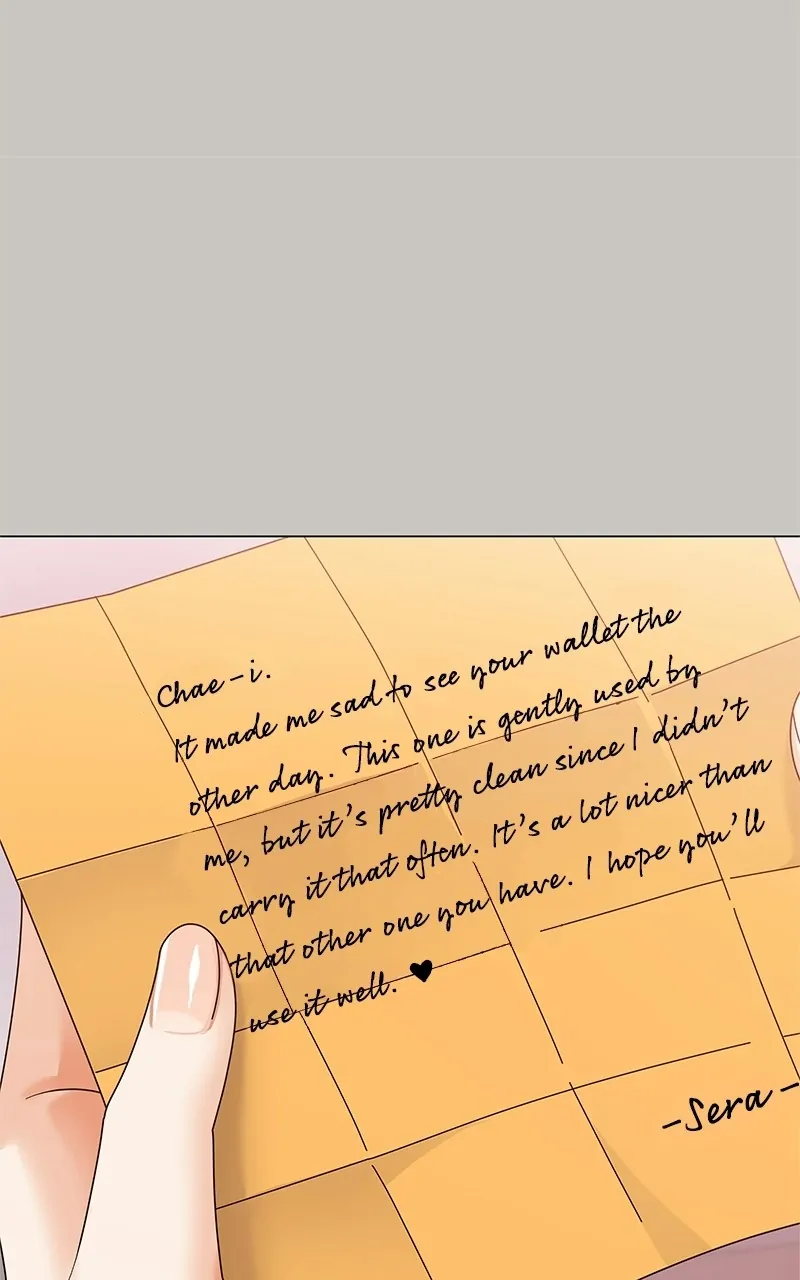 Chae-i.
It made me sad to see your wallet the
other day. This one is gently used by
me, but it's pretty clean since I didn't
carry it that often. It's a lot nicer than
that other one you have. I hope you'll
use it well. ♥
-Sera-